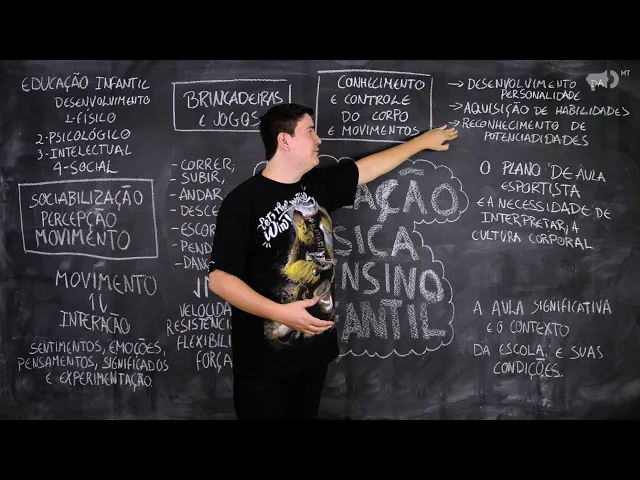 EDUCAÇÃO INFANTIL
DESENVOLVIMENTO
1-FÍSICO
2-PSICOLÓGICO
3-INTELECTUAL
4-SOCIAL
SOCIABILIZAÇÃO
PERCEPÇÃO
MOVIMENTO
MOVIMENTO
INTERAÇÃO
SENTIMENTOS, EMOÇÕES,
PENSAMENTOS, SIGNIFICADOS
E EXPERIMENTAÇÃO.
BRINCADEIRAS
E JOGOS
- CORRER;
- SUBIR,
- ANDAR
- DESCE
- ESCOR
- PEND
- DAN
VELOCIDA
RESISTÊNCI
FLEXIBILI
FORÇA
CONHECIMENTO
E CONTROLE
DO CORPO
E MOVIMENTOS
AÇÃO
SICA
ENSINO
ANTIL
LET'S
→ DESENVOLVIMENTO DA
PERSONALIDADE
→ AQUISIÇÃO DE HABILIDADES
→ RECONHECIMENTO DE
POTENCIADIDADES
O PLANO DE AULA
ESPORTISTA
E A NECESSIDADE DE
INTERPRETAR A
CULTURA CORPORAL
A AULA SIGNIFICATIVA
E O CONTEXTO
DA ESCOLA E SUAS
CONDIÇÕES.
MT